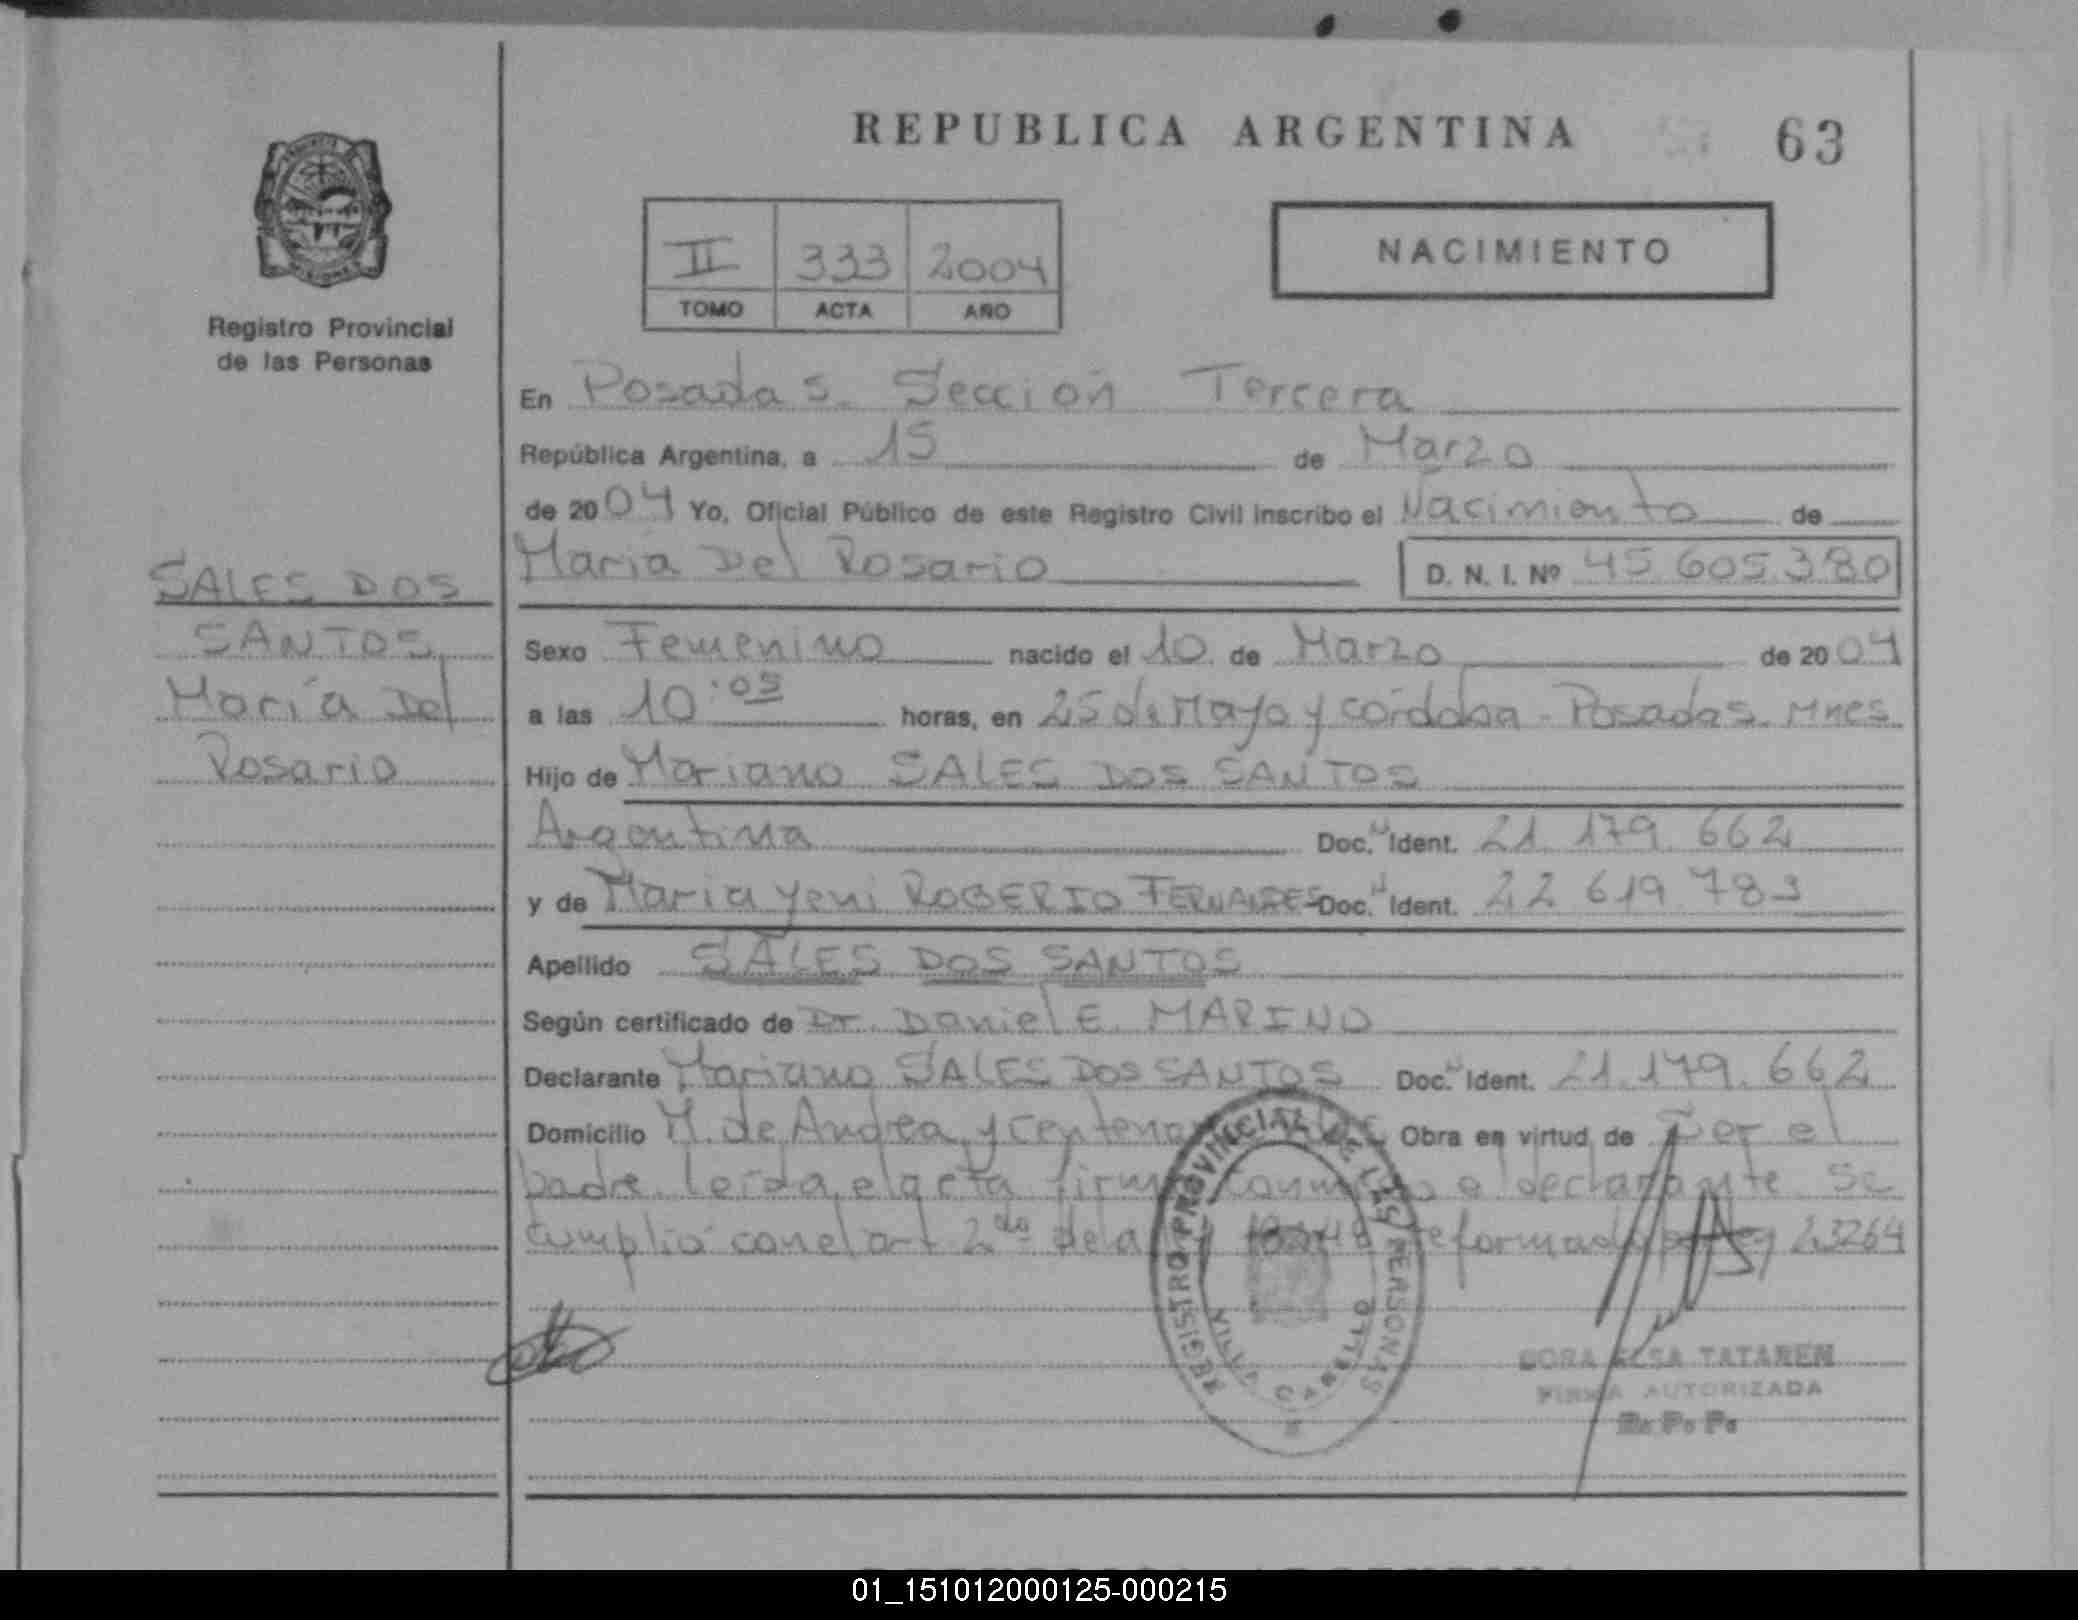 REPUBLICA ARGENTINA 63
NACIMIENTO
II 333 2004
TOMO ACTA AÑO
Registro Provincial
de las Personas
En Posadas. Sección Tercera
República Argentina, a 15 de Marzo
de 2004 Yo, Oficial Público de este Registro Civil inscribo el Nacimiento de
María Del Rosario D. N. I. Nº 45.605.380
SALES DOS
SANTOS
María Del
Rosario
Sexo Femenino nacido el 10 de Marzo de 2004
a las 10:05 horas, en 25 de Mayo y Córdoba - Posadas. Mnes
Hijo de Mariano SALES DOS SANTOS
Argentina Doc. Ident. 21.179.662
y de Maria Yeni ROBERIO FERNANDES Doc. Ident. 22.619.783
Apellido SALES DOS SANTOS
Según certificado de Dr. Daniel E. MARINO
Declarante Mariano SALES DOS SANTOS Doc. Ident. 21.179.662
Domicilio M. de Andrea y Obra en virtud de Ser el
padre. leida el acta firma conmigo el declarante. Se
cumplió con el art 2do de la reformada por ley 23264
REGISTRO PROVINCIAL DE LAS PERSONAS
VILLA CABELLO
ELSA TATAREN
FIRMA AUTORIZADA
R. P. P.
01_151012000125-000215